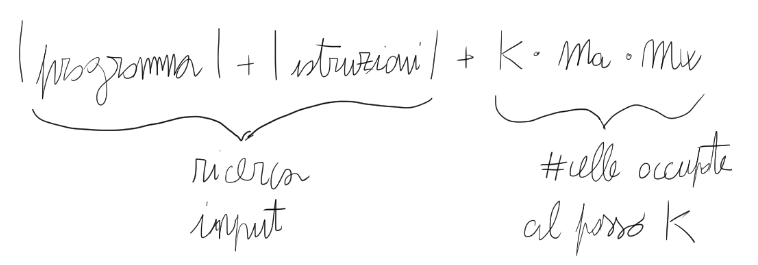 |programma| + |istruzioni| + K · ma · mx
ricerca
input
#celle occupate
al passo K